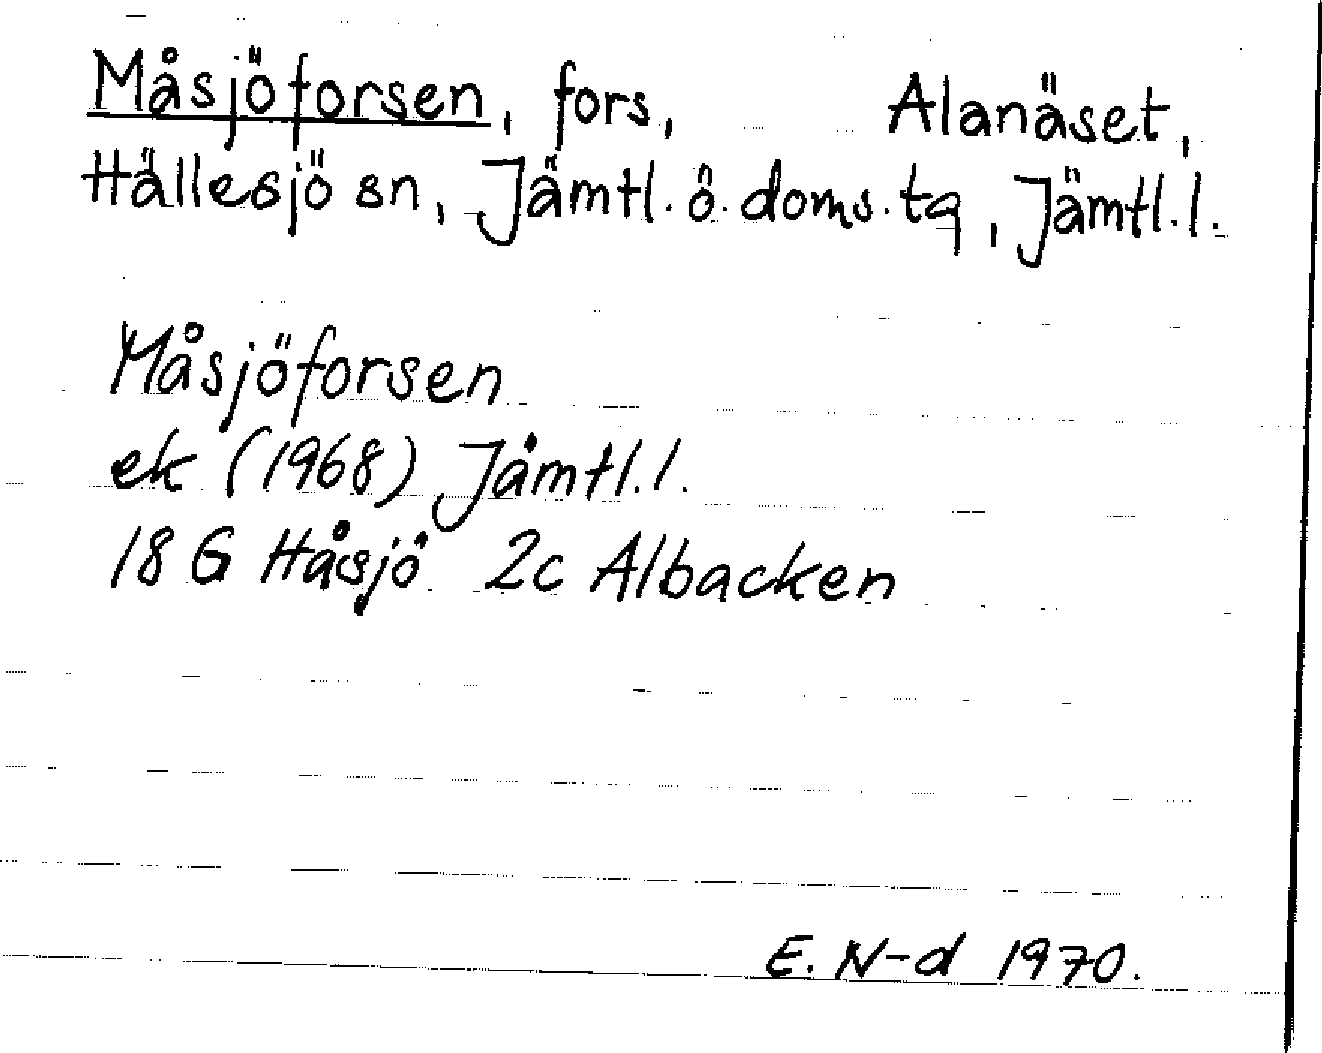 Måsjöforsen, fors, Alanäset,
Hällesjö sn, Jämtl. ö. doms. tg, Jämtl. l.
Måsjöforsen
ek (1968) Jämtl. l.
18 G Håsjö 2c Albacken
E. N-d 1970.